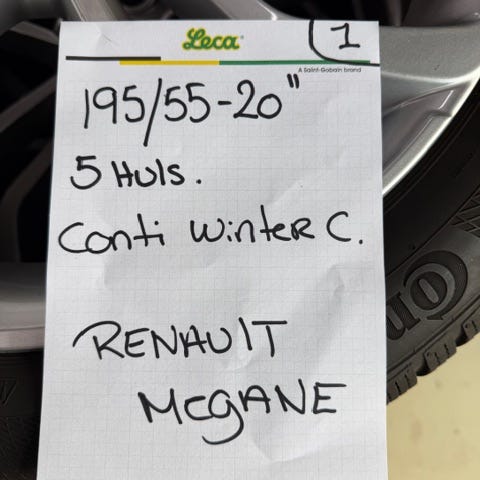 Leca®
1
A Saint-Gobain brand
195/55-20"
5 Huls.
Conti WinteR C.
RENAULT
McgANE
Con